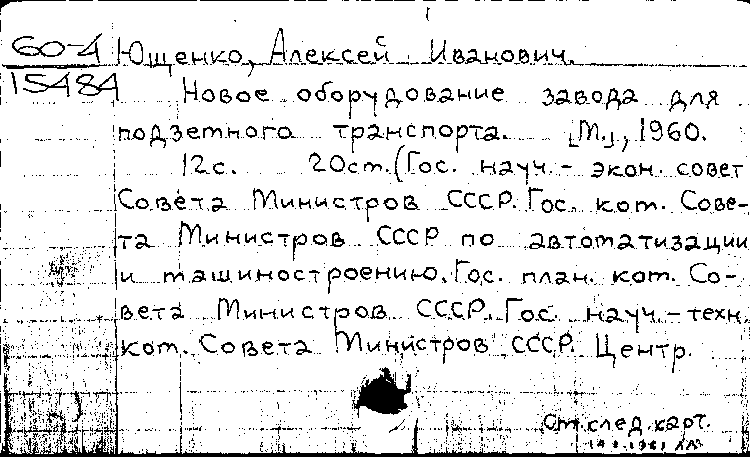 60-4
15484
Ющенко, Алексей Иванович.
Новое оборудование завода для
подземного транспорта. [М.], 1960.
12с. 20см. (Гос. науч.- экон. совет
Совета Министров СССР. Гос. ком. Сове-
та Министров СССР по автоматизации
и машиностроению. Гос. план. ком. Со-
вета Министров СССР. Гос. науч.-техн.
ком. Совета Министров СССР. Центр.
См. след. карт.